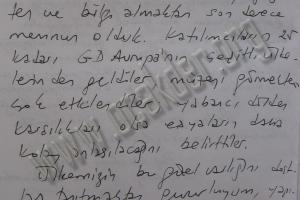 ler ve bilgi almaktan son derece
memnun olduk. Katılımcıların 25
kadarı GD Avrupa'nın çeşitli ülke-
lerinden geldiler müzeyi görmekten
çok etkilendiler. yabancı dilden
karşılıkları olsa eşyaların daha
kolay anlaşılacağını belirttiler.
Ülkemizin bu güzel varlığını dest-
gururluyum, yapı-